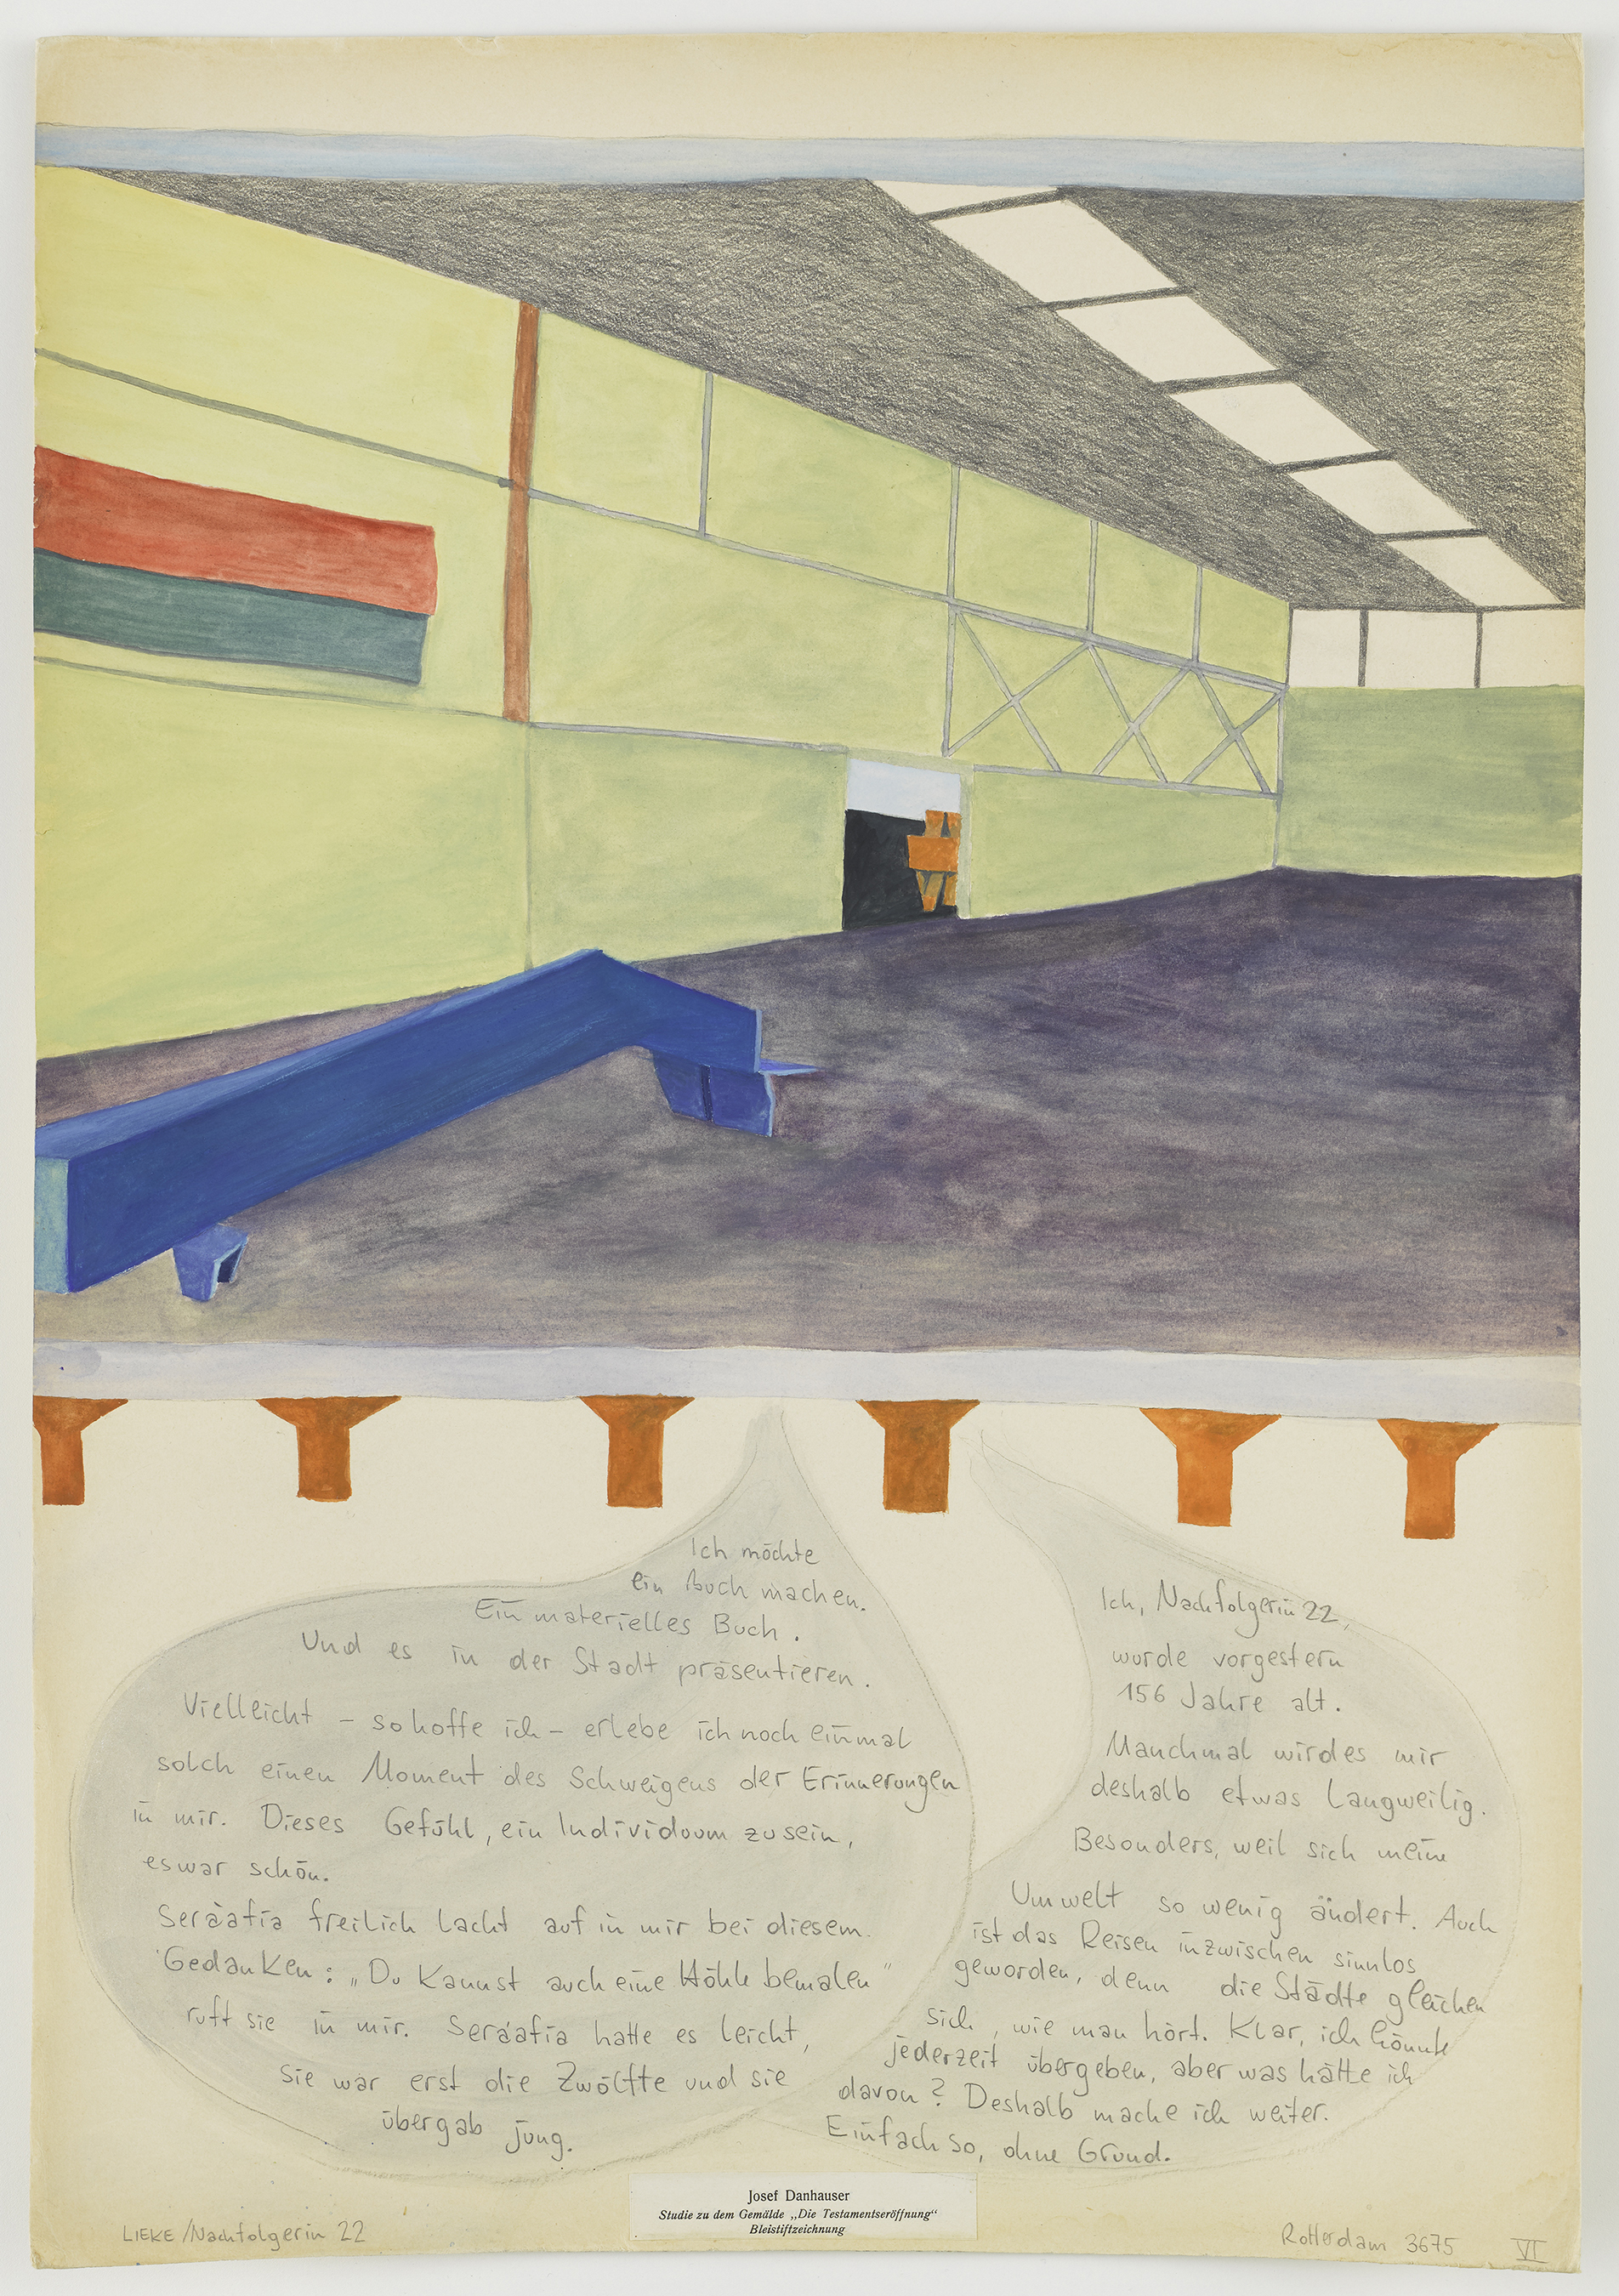 Ich möchte
ein Buch machen.
Ein materielles Buch.
Und es in der Stadt präsentieren.
Vielleicht – so hoffe ich – erlebe ich noch einmal
solch einen Moment des Schweigens der Erinnerungen
in mir. Dieses Gefühl, ein Individuum zu sein,
es war schön.
Seráafia freilich lacht auf in mir bei diesem
Gedanken: „Du kannst auch eine Höhle bemalen“
ruft sie in mir. Seráafia hatte es leicht,
sie war erst die Zwölfte und sie
übergab jung.
Ich, Nachfolgerin 22,
wurde vorgestern
156 Jahre alt.
Manchmal wird es mir
deshalb etwas langweilig.
Besonders, weil sich meine
Umwelt so wenig ändert. Auch
ist das Reisen inzwischen sinnlos
geworden, denn die Städte gleichen
sich, wie man hört. Klar, ich könnte
jederzeit übergeben, aber was hätte ich
davon? Deshalb mache ich weiter.
Einfach so, ohne Grund.
Josef Danhauser
Studie zu dem Gemälde „Die Testamentseröffnung“
Bleistiftzeichnung
LIEKE/Nachfolgerin 22
Rotterdam 3675 VI